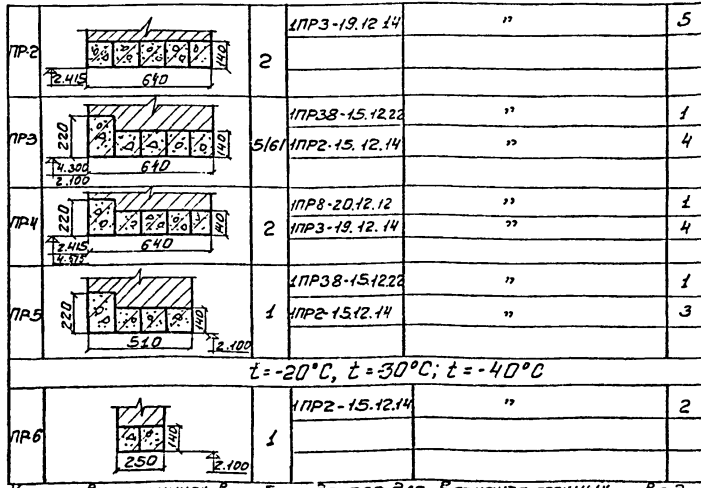 ПР-2 140 2.415 640 2 1ПР3-19.12.14 " 5
ПР3 220 140 4.300 2.100 640 5/61 1ПР38-15.12.22 " 1
1ПР2-15.12.14 " 4
ПР4 220 140 2.415 4.575 640 2 1ПР8-20.12.12 " 1
1ПР3-19.12.14 " 4
ПР5 220 140 510 2.100 1 1ПР38-15.12.22 " 1
1ПР2-15.12.14 " 3
t=-20°C, t=-30°C; t=-40°C
ПР6 140 250 2.100 1 1ПР2-15.12.14 " 2